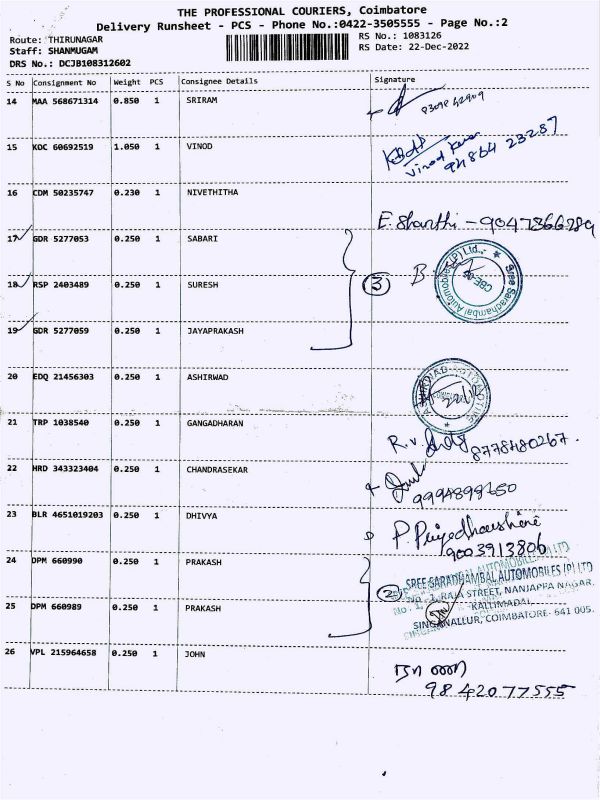 THE PROFESSIONAL COURIERS, Coimbatore
Delivery Runsheet - PCS - Phone No.:0422-3505555 - Page No.:2
Route: THIRUNAGAR
RS No.: 1083126
Staff: SHANMUGAM
RS Date: 22-Dec-2022
DRS No.: DCJB108312602
S No Consignment No Weight PCS Consignee Details Signature
14 MAA 568671314 0.850 1 SRIRAM
15 KOC 60692519 1.050 1 VINOD
94864 23287
16 CDM 50235747 0.230 1 NIVETHITHA
E. Shanthi - 9047366789
17 GDR 5277053 0.250 1 SABARI
18 RSP 2403489 0.250 1 SURESH
3
Sree Saradhambal Automobiles (P) Ltd.,
CBE-05
19 GDR 5277059 0.250 1 JAYAPRAKASH
20 EDQ 21456303 0.250 1 ASHIRWAD
21 TRP 1038540 0.250 1 GANGADHARAN
8778480267.
22 HRD 343323404 0.250 1 CHANDRASEKAR
23 BLR 4651019203 0.250 1 DHIVYA
P. Priyadharshini
9003913806
24 DPM 660990 0.250 1 PRAKASH
2
SREE SARADHAMBAL AUTOMOBILES (P) LTD
No. 1, RAJA STREET, NANJAPPA NAGAR,
KALLIMADAI,
SINGANALLUR, COIMBATORE- 641 005.
25 DPM 660989 0.250 1 PRAKASH
26 VPL 215964658 0.250 1 JOHN
9842077555